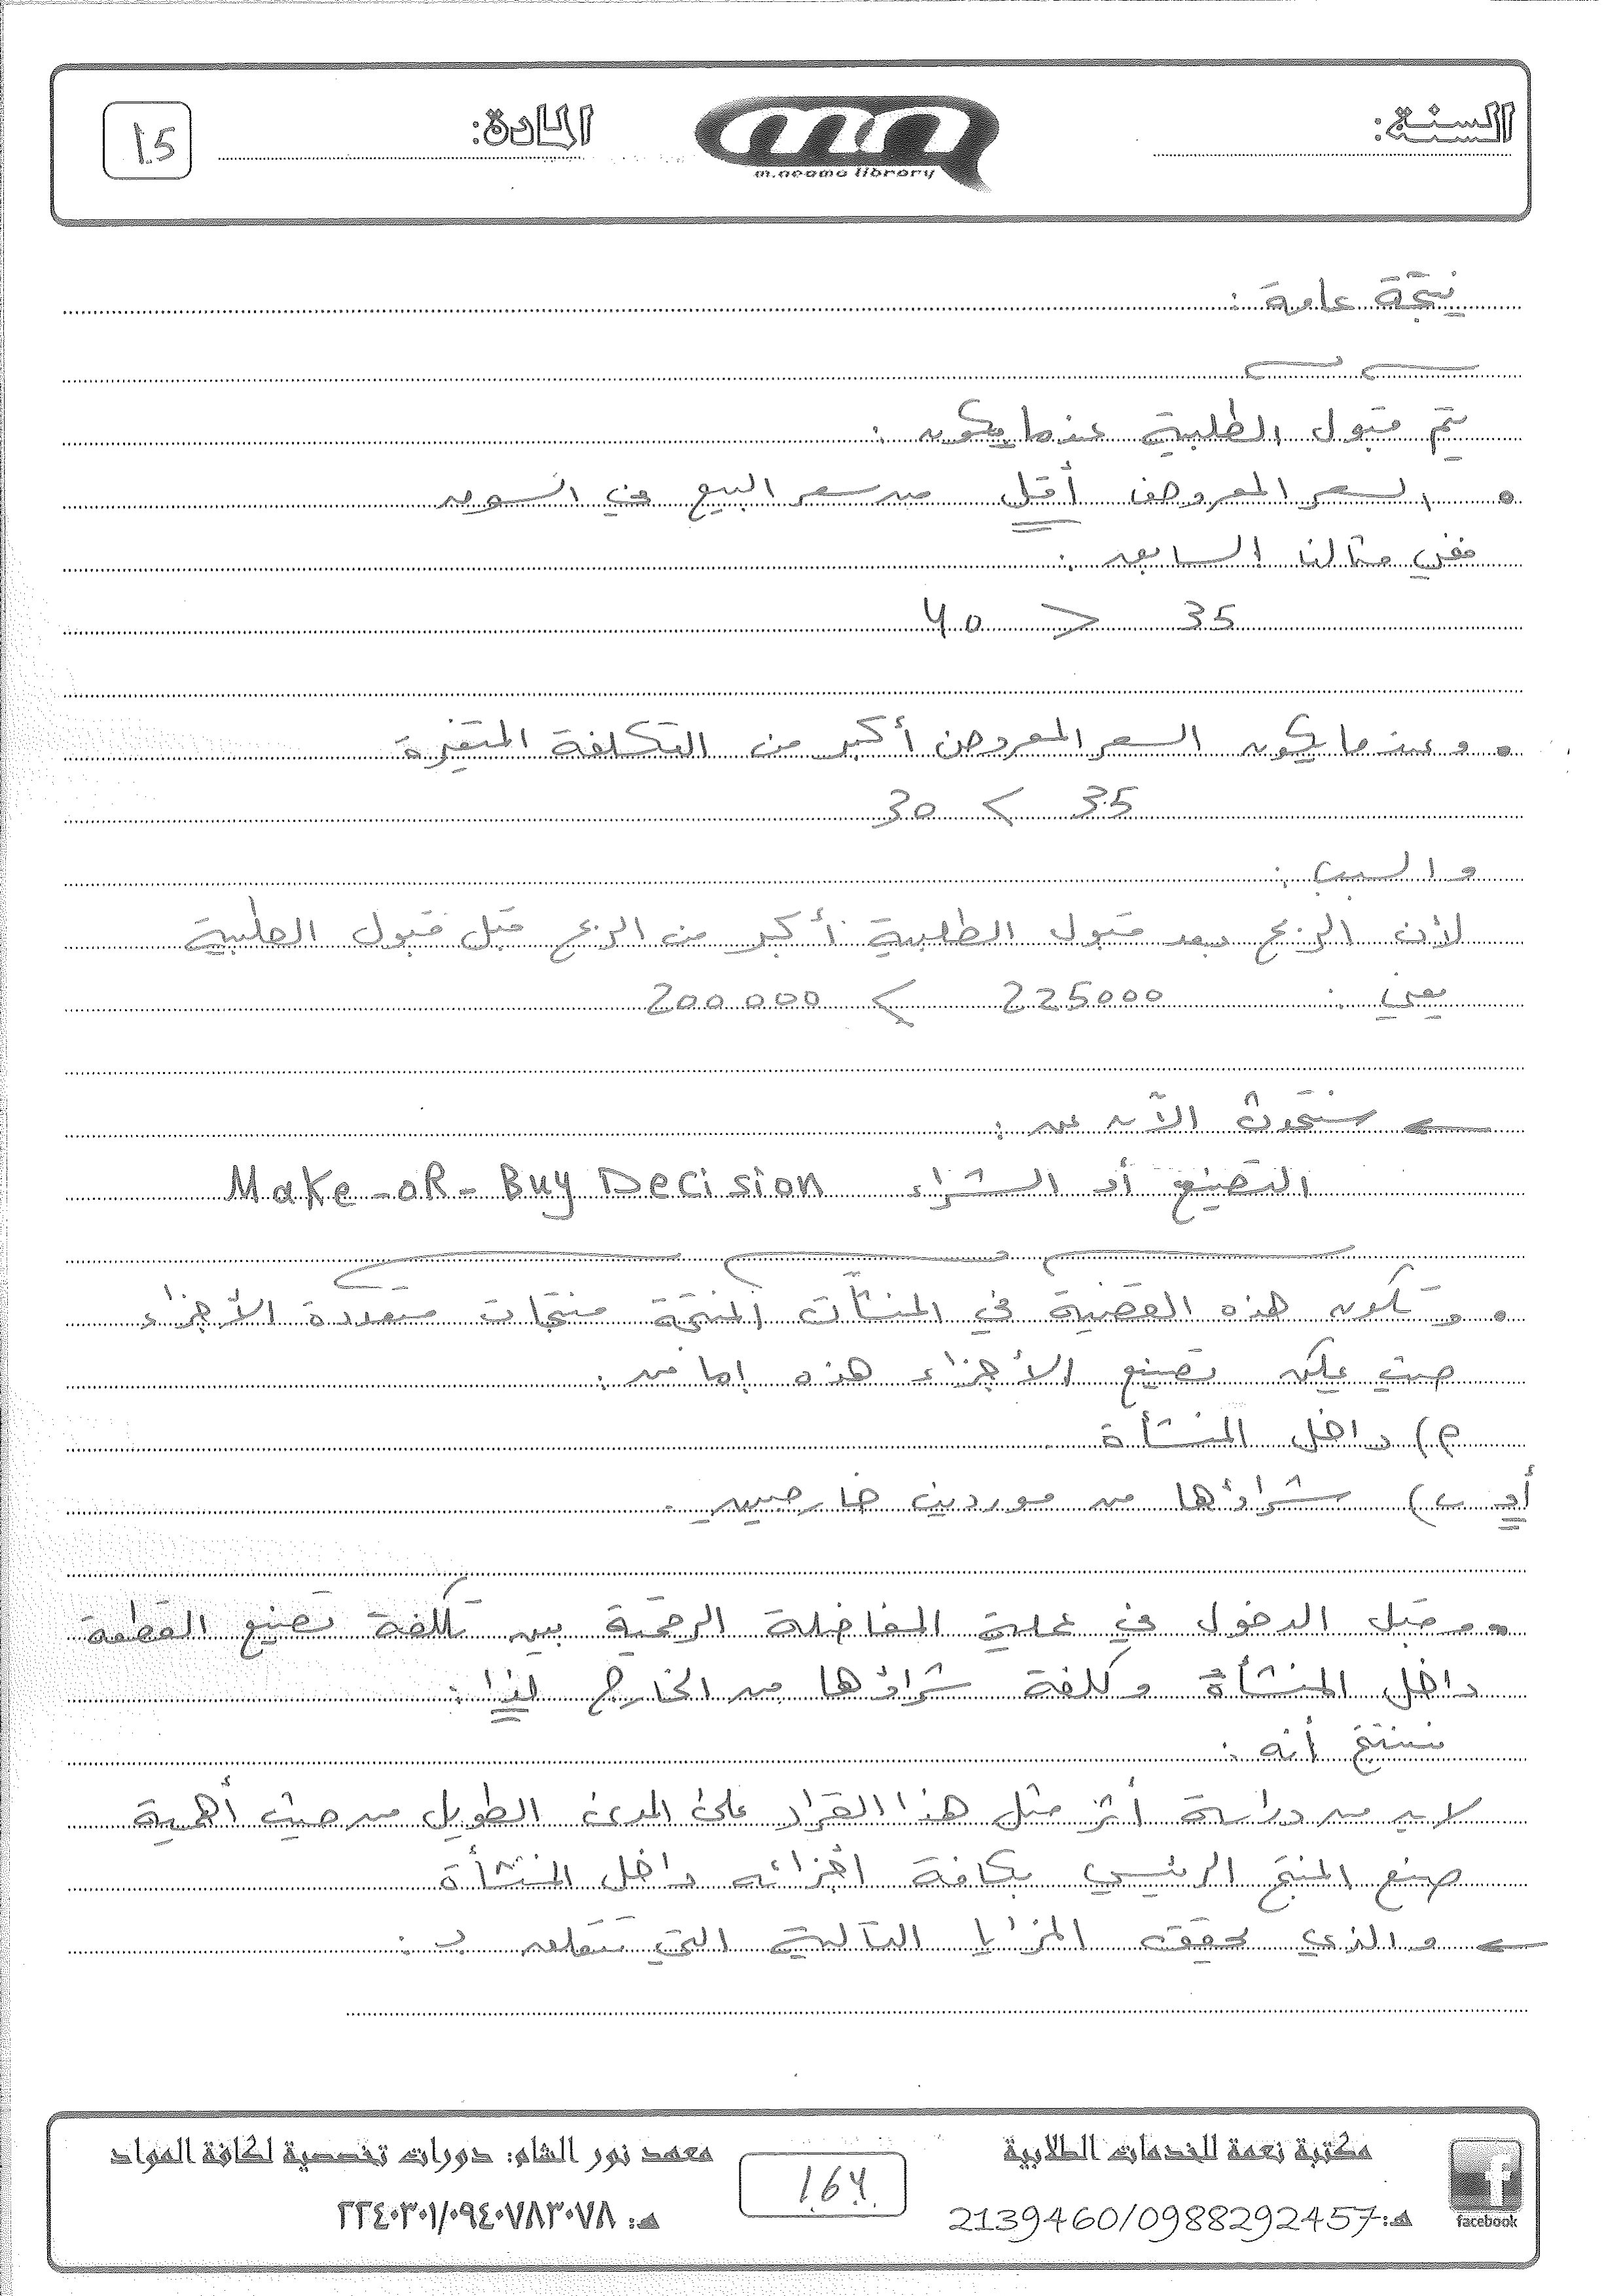 السنة:
m.neama library
المادة:
15
نتيجة عامة :
يتم قبول الطلبية عندما يكون :
• السعر المعروض أقل من سعر البيع في السوق
ففي مثالنا السابق :
35 > 40
• وعندما يكون السعر المعروض أكبر من التكلفة المتغيرة
35 < 30
والسبب :
لأن الربح بعد قبول الطلبية أكبر من الربح قبل قبول الطلبية
يعني : 225000 < 200000
سنتحدث الآن عن :
التصنيع أو الشراء Make-oR-Buy Decision
• وتكون هذه القضية في المنشآت المنتجة منتجات متعددة الأجزاء
حيث يمكن تصنيع الأجزاء هذه إما من :
م) داخل المنشأة
أو ب) شراؤها من موردين خارجيين .
• وقبل الدخول في عملية المفاضلة الرقمية بين تكلفة تصنيع القطعة
داخل المنشأة وكلفة شراؤها من الخارج لذا :
نستنتج أنه :
لابد من دراسة أثر مثل هذا القرار على المدى الطويل من حيث أهمية
صنع المنتج الرئيسي بكافة أجزائه داخل المنشأة
والذي يحقق المزايا التالية التي تتعلق بـ :
مكتبة نعمة للخدمات الطلابية
هـ: 2139460/0988292457
facebook
164
معهد نور الشام: دورات تخصصية لكافة المواد
هـ: ٢٢٤٠٣٠١/٠٩٤٠٧٨٣٠٧٨